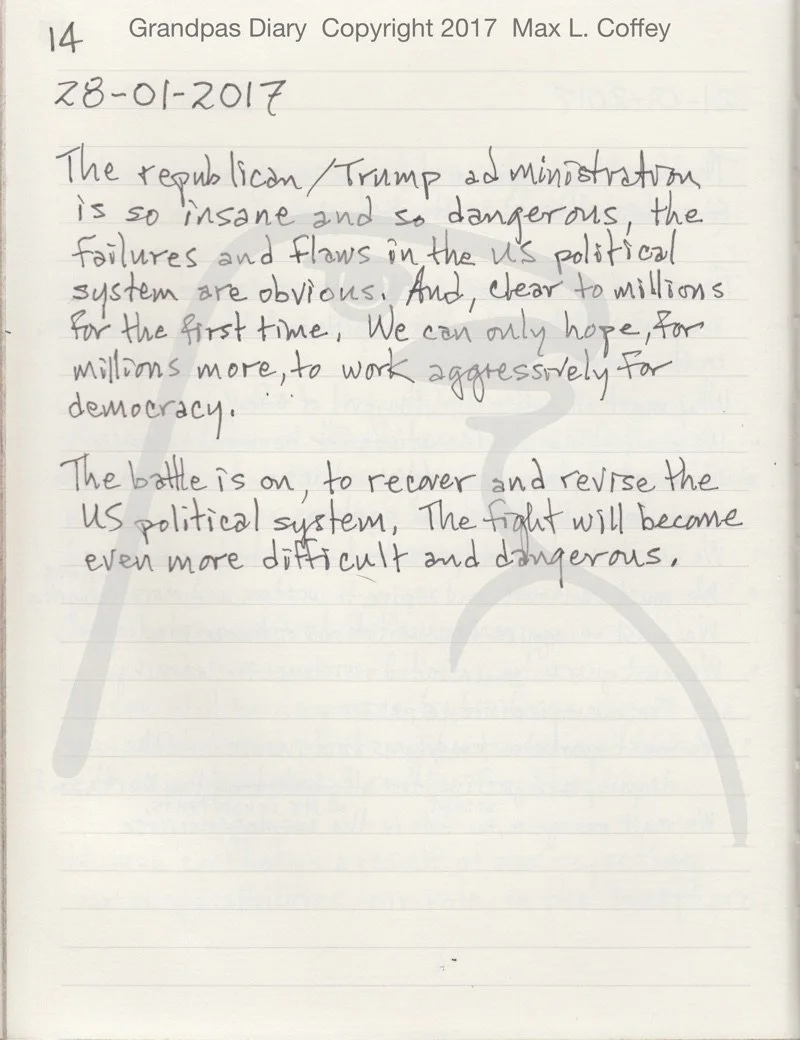 14 Grandpas Diary Copyright 2017 Max L. Coffey
28-01-2017
The republican/Trump administration
is so insane and so dangerous, the
failures and flaws in the US political
system are obvious. And, clear to millions
for the first time. We can only hope, for
millions more, to work aggressively for
democracy.
The battle is on, to recover and revise the
US political system. The fight will become
even more difficult and dangerous.